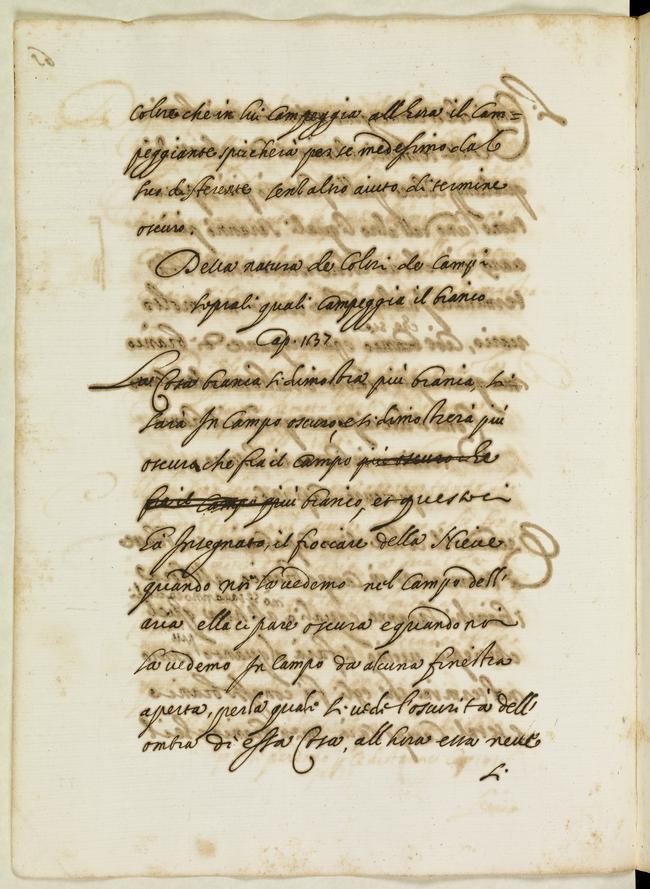 colore che in lui campeggia all'hora il cam=
peggiante spicherà per se medesimo dal
suo diferente senz'altro aiuto di termine
oscuro.
Della natura de Colori de campi
soprali quali campeggia il bianco
Cap. 137
La Cosa bianca si dimostra più bianca, si
sarà In campo oscuro, e si dimosterà più
oscura che sia il campo più oscuro che
sia il campo più bianco, et questo ci
hà Insegnato, il fioccare della Nieve
quando noi la vedemo nel campo dell'
aria ella ci pare oscura e quando noi
la vedemo In campo da alcuna finestra
aperta, per la quale si vede l'oscurità dell'
ombra di essa Cosa, all'hora essa neve
si